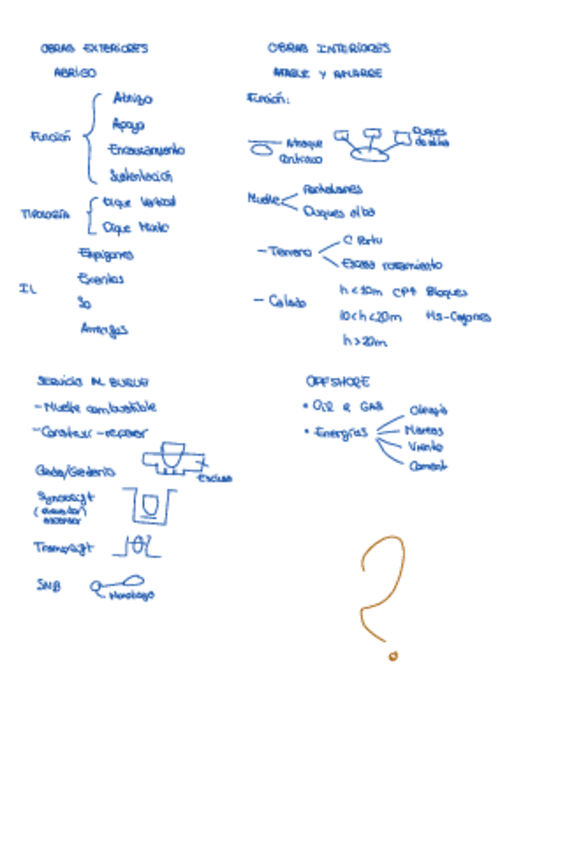 OBRAS EXTERIORES
ABRIGO
Función
Abrigo
Apoyo
Encauzamiento
Sustentación
TIPOLOGÍA
Dique Vertical
Dique Mixto
Espigones
Exentos
IL
So
OBRAS INTERIORES
ATAQUE Y AMARRE
Función:
Atraque
Continuo
Duques
de alba
Muelle
Pantalanes
Duques alba
- Terreno
C Portu
Escaso rozamiento
- Calado
h < 10m CPA Bloques
10<h<20m Hs-Cajones
h>20m
SERVICIO AL BUQUE
- Muelle combustible
- Construir - reparar
Esclusa
Syncrolift
(elevador)
ascensor
SNB
OFFSHORE
• OIL & GAS
• Energías
Oleaje
Mareas
Viento
Corrient
?